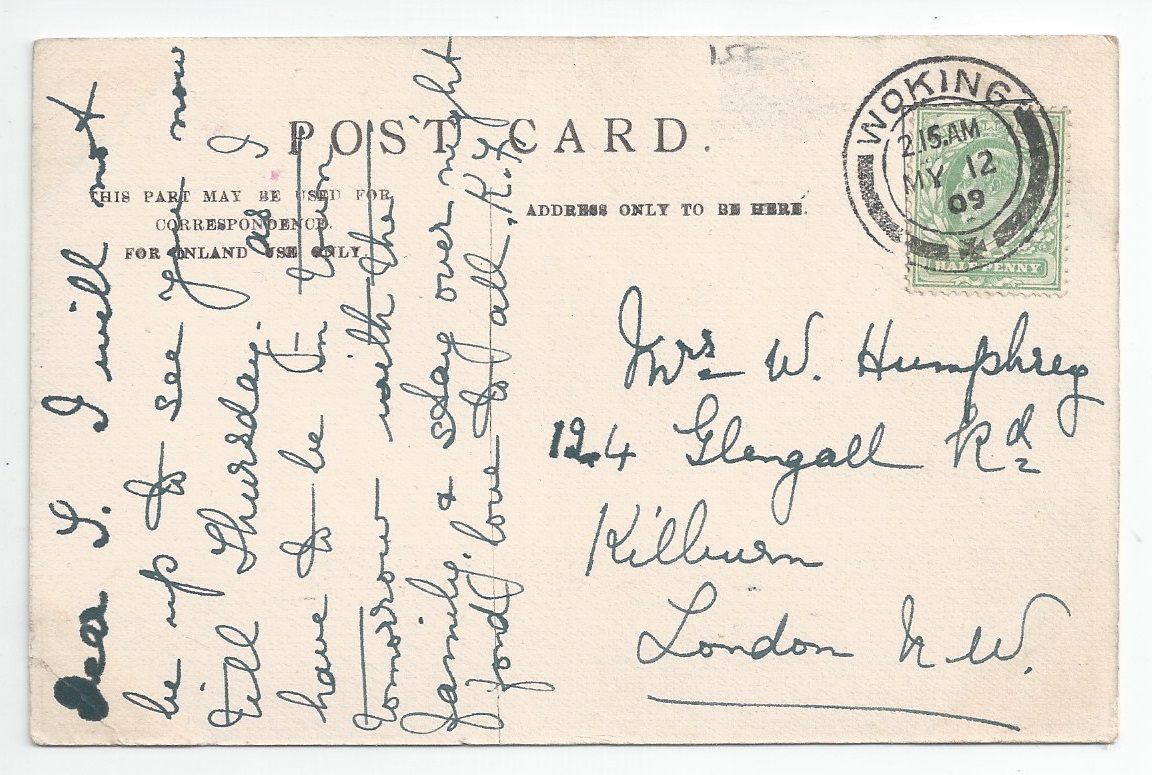 155
POST CARD.
THIS PART MAY BE USED FOR
CORRESPONDENCE.
FOR INLAND USE ONLY
ADDRESS ONLY TO BE HERE.
WOKING
2.15.AM
MY 12
09
HALFPENNY
Dear S. I will not
be up to see you now
till Thursday. as I
have to be in town
tomorrow with the
family & stay over night
fond love to all. K.H.
Mrs W. Humphrey
124 Glengall Rd
Kilburn
London N.W.